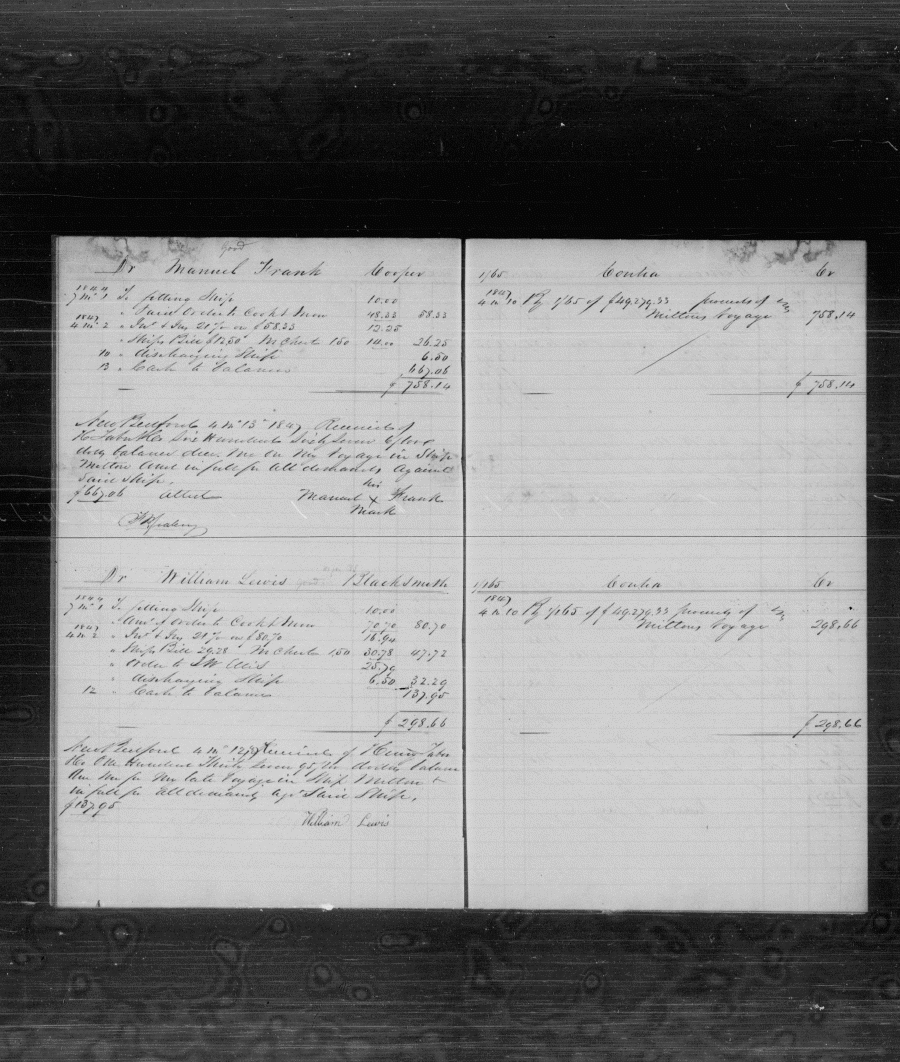 good
Dr Manuel Frank Cooper
1844
7 mo 1 To fitting Ship 10.00
" Order to Cook & Snow 48.33 58.33
1847
4 mo 2 " Int & Ins 21 % on $58.33 12.25
" Ships Bill $12.50 M Chest 1.50 14.00 26.25
10 " discharging Ship 6.50
13 " Cash to balance 667.06
$ 758.14
New Bedford 4 mo 13 1847 Received of
H. Taber & Co Six Hundred Sixty Seven 6/100
dolls balance due me on my Voyage in Ship
Milton and in full for all demands against
Said Ship.
$667.06 Attest Manuel his X mark Frank
1/165 Contra Cr
1847
4 mo 10 By 1/165 of $49,279.33 proceeds of
Miltons Voyage 758.14
$ 758.14
Dr William Lewis Blacksmith
1844
7 mo 1 To fitting Ship 10.00
" Amt of order to Cook & Snow 70.70 80.70
1847
4 mo 2 " Int & Ins 21 % on $80.70 16.94
" Ships Bill 29.28 M Chest 1.50 30.78 47.72
" Order to Ellis 25.79
" discharging Ship 6.50 32.29
12 " Cash to balance 137.95
$ 298.66
New Bedford 4 mo 12 Received of Henry Taber
& Co One Hundred Thirty Seven 95/100 dollars balance
due me for my late Voyage in Ship Milton &
in full for all demands agst Said Ship.
$137.95
William Lewis
1/165 Contra Cr
1847
4 mo 10 By 1/165 of $49,279.33 proceeds of
Miltons Voyage 298.66
$ 298.66